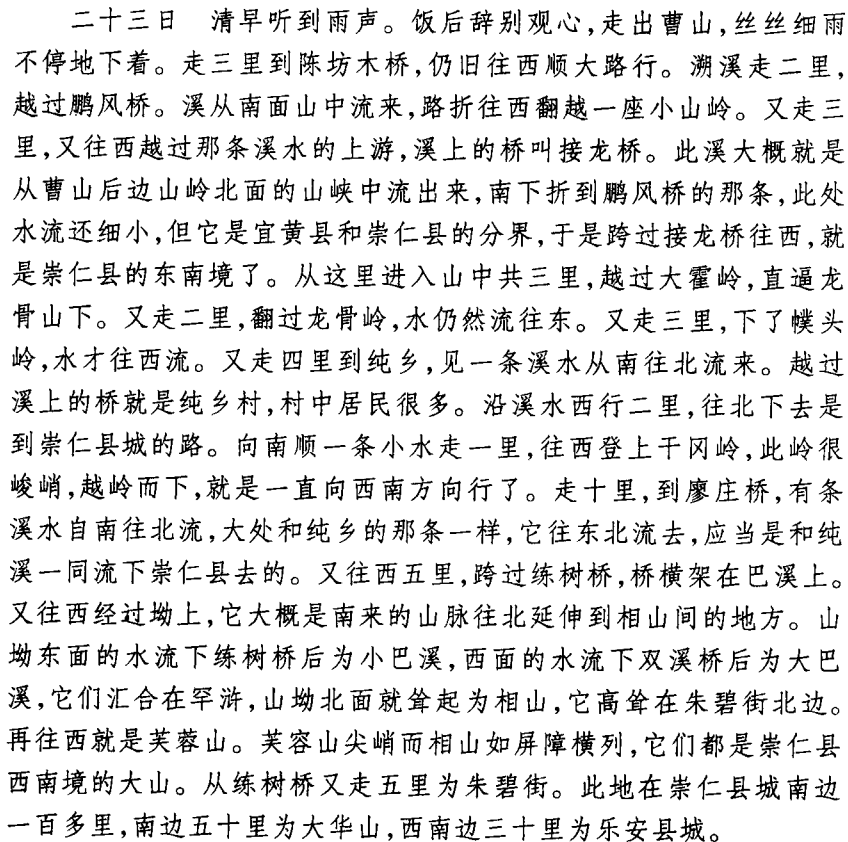 二十三日　清早听到雨声。饭后辞别观心,走出曹山,丝丝细雨
不停地下着。走三里到陈坊木桥,仍旧往西顺大路行。溯溪走二里,
越过鹏风桥。溪从南面山中流来,路折往西翻越一座小山岭。又走三
里,又往西越过那条溪水的上游,溪上的桥叫接龙桥。此溪大概就是
从曹山后边山岭北面的山峡中流出来,南下折到鹏风桥的那条,此处
水流还细小,但它是宜黄县和崇仁县的分界,于是跨过接龙桥往西,就
是崇仁县的东南境了。从这里进入山中共三里,越过大霍岭,直逼龙
骨山下。又走二里,翻过龙骨岭,水仍然流往东。又走三里,下了幞头
岭,水才往西流。又走四里到纯乡,见一条溪水从南往北流来。越过
溪上的桥就是纯乡村,村中居民很多。沿溪水西行二里,往北下去是
到崇仁县城的路。向南顺一条小水走一里,往西登上干冈岭,此岭很
峻峭,越岭而下,就是一直向西南方向行了。走十里,到廖庄桥,有条
溪水自南往北流,大处和纯乡的那条一样,它往东北流去,应当是和纯
溪一同流下崇仁县去的。又往西五里,跨过练树桥,桥横架在巴溪上。
又往西经过坳上,它大概是南来的山脉往北延伸到相山间的地方。山
坳东面的水流下练树桥后为小巴溪,西面的水流下双溪桥后为大巴
溪,它们汇合在罕浒,山坳北面就耸起为相山,它高耸在朱碧街北边。
再往西就是芙蓉山。芙容山尖峭而相山如屏障横列,它们都是崇仁县
西南境的大山。从练树桥又走五里为朱碧街。此地在崇仁县城南边
一百多里,南边五十里为大华山,西南边三十里为乐安县城。